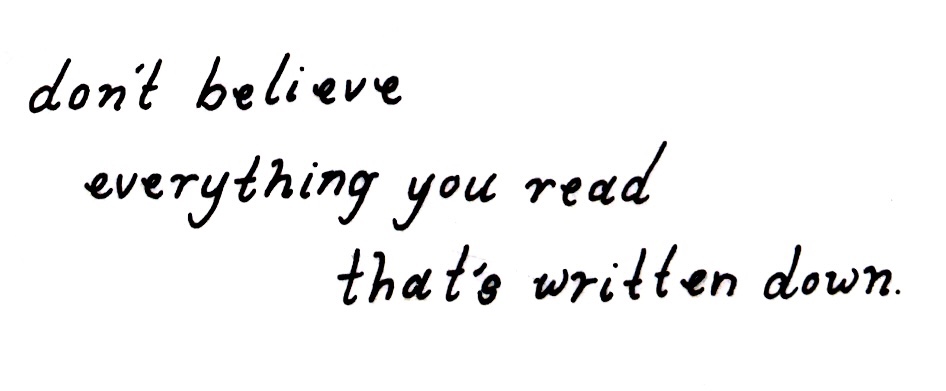 don't believe
everything you read
that's written down.